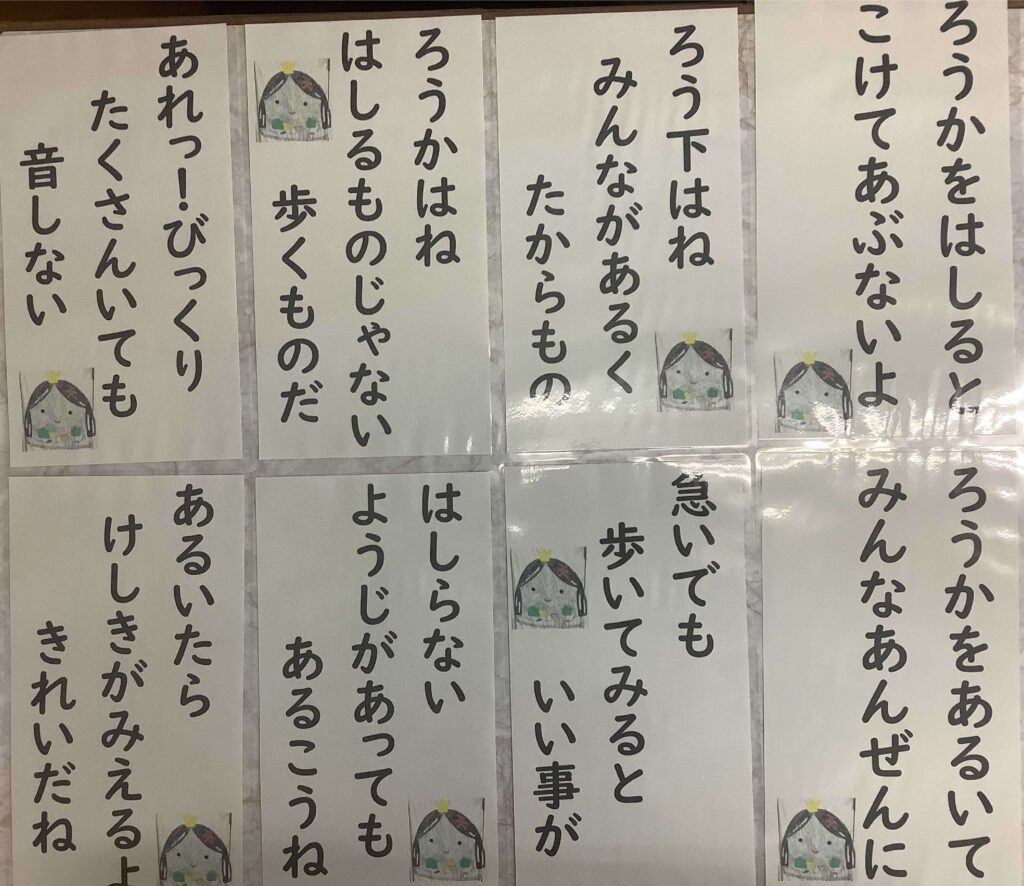 ろうかをはしると
こけてあぶないよ
ろう下はね
みんながあるく
たからもの
ろうかはね
はしるものじゃない
歩くものだ
あれっ!びっくり
たくさんいても
音しない
ろうかをあるいて
みんなあんぜんに
急いでも
歩いてみると
いい事が
はしらない
ようじがあっても
あるこうね
あるいたら
けしきがみえるよ
きれいだね